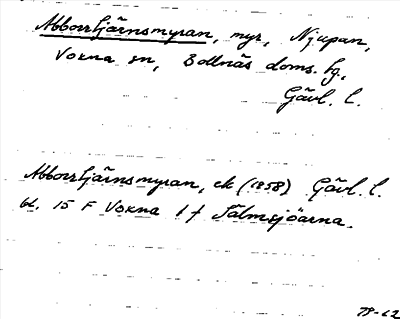 Abborrtjärnsmyran, myr, Njupan,
Voxna sn, Bollnäs doms. hg,
Gävl. l.
Abborrtjärnsmyran, ek (1958) Gävl. l.
bl. 15 F Voxna 1 f Tälmsjöarna.